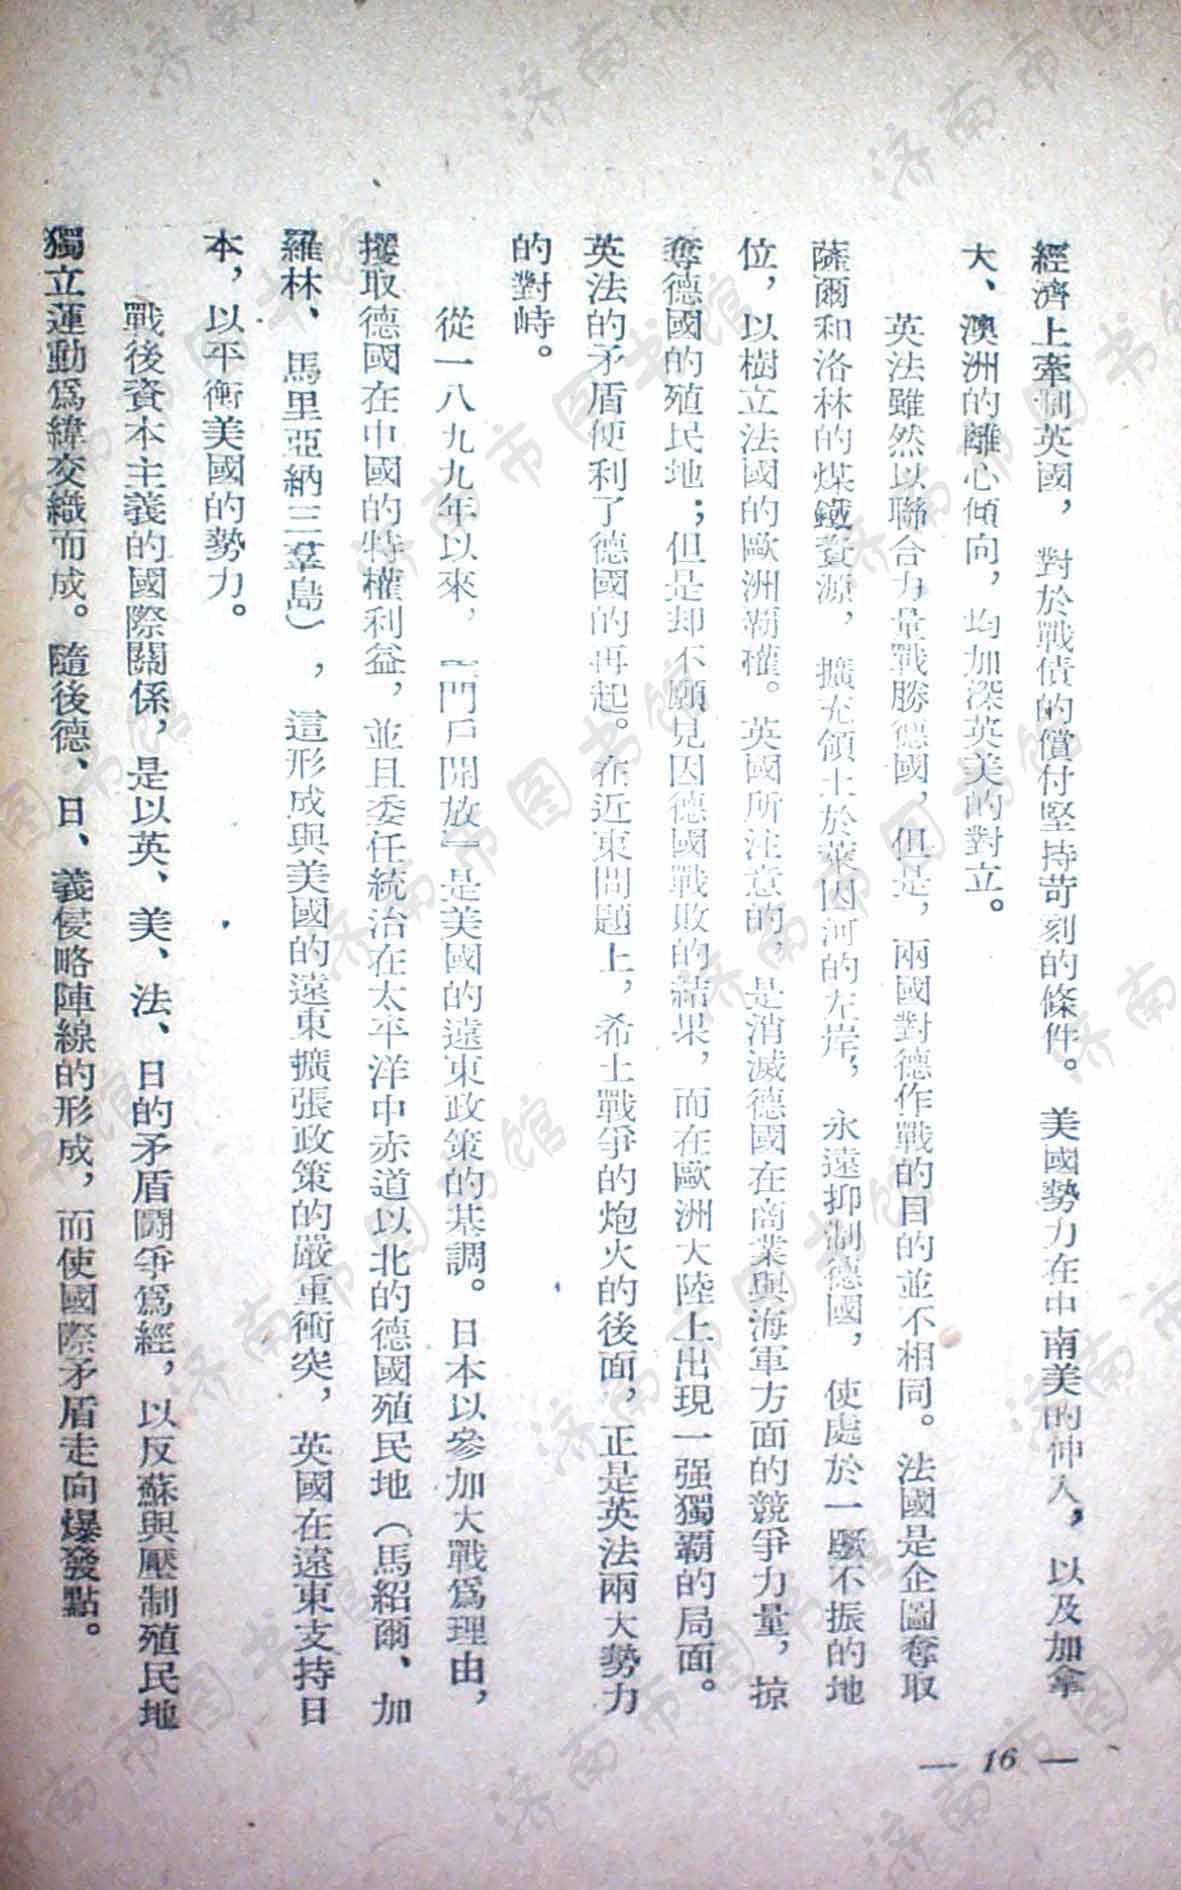 經濟上牽制英國，對於戰債的償付堅持苛刻的條件。美國勢力在中南美的伸入，以及加拿
大、澳洲的離心傾向，均加深英美的對立。
英法雖然以聯合力量戰勝德國，但是，兩國對德作戰的目的並不相同。法國是企圖奪取
薩爾和洛林的煤鐵資源，擴充領土於萊因河的左岸，永遠抑制德國，使處於一蹶不振的地
位，以樹立法國的歐洲霸權。英國所注意的，是消滅德國在商業與海軍方面的競爭力量，掠
奪德國的殖民地；但是却不願見因德國戰敗的結果，而在歐洲大陸上出現一强獨霸的局面。
英法的矛盾便利了德國的再起。在近東問題上，希土戰爭的炮火的後面，正是英法兩大勢力
的對峙。
從一八九九年以來，「門戶開放」是美國的遠東政策的基調。日本以參加大戰爲理由，
攫取德國在中國的特權利益，並且委任統治在太平洋中赤道以北的德國殖民地（馬紹爾、加
羅林、馬里亞納三羣島），這形成與美國的遠東擴張政策的嚴重衝突，英國在遠東支持日
本，以平衡美國的勢力。
戰後資本主義的國際關係，是以英、美、法、日的矛盾鬪爭爲經，以反蘇與壓制殖民地
獨立運動爲緯交織而成。隨後德、日、義侵略陣線的形成，而使國際矛盾走向爆發點。
— 16 —
济南市图书馆